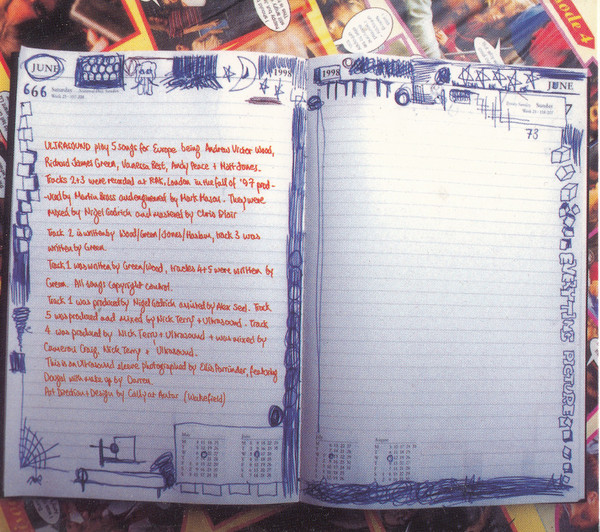 JUNE
1998
666 Saturday
ULTRASOUND play 5 songs for Europe being Andrew Victor Wood,
Richard James Green, Vanessa Best, Andy Peace + Matt Jones.
Tracks 2+3 were recorded at RAK, London in the fall of '97 prod-
-uced by Martin and engineered by Mark Mason. They were
mixed by Nigel Godrich and mastered by Chris Blair
Track 2 is written by Wood/Green/Jones/ , track 3 was
written by Green.
Track 1 was written by Green/Wood, tracks 4+5 were written by
Green. All songs Copyright control.
Track 1 was produced by Nigel Godrich assisted by Alex Seel. Track
5 was produced and mixed by Nick Terry + Ultrasound. Track
4 was produced by Nick Terry + Ultrasound + was mixed by
Cameron Craig, Nick Terry + Ultrasound.
This is an Ultrasound sleeve photographed by Ellis Parrinder, featuring
Dougal with make up by Darren.
Art Direction + Design by Cally at Antar (Wakefield)
May
June
1998
JUNE
Sunday
73
EVERYTHING PICTURE
August
Episode 4